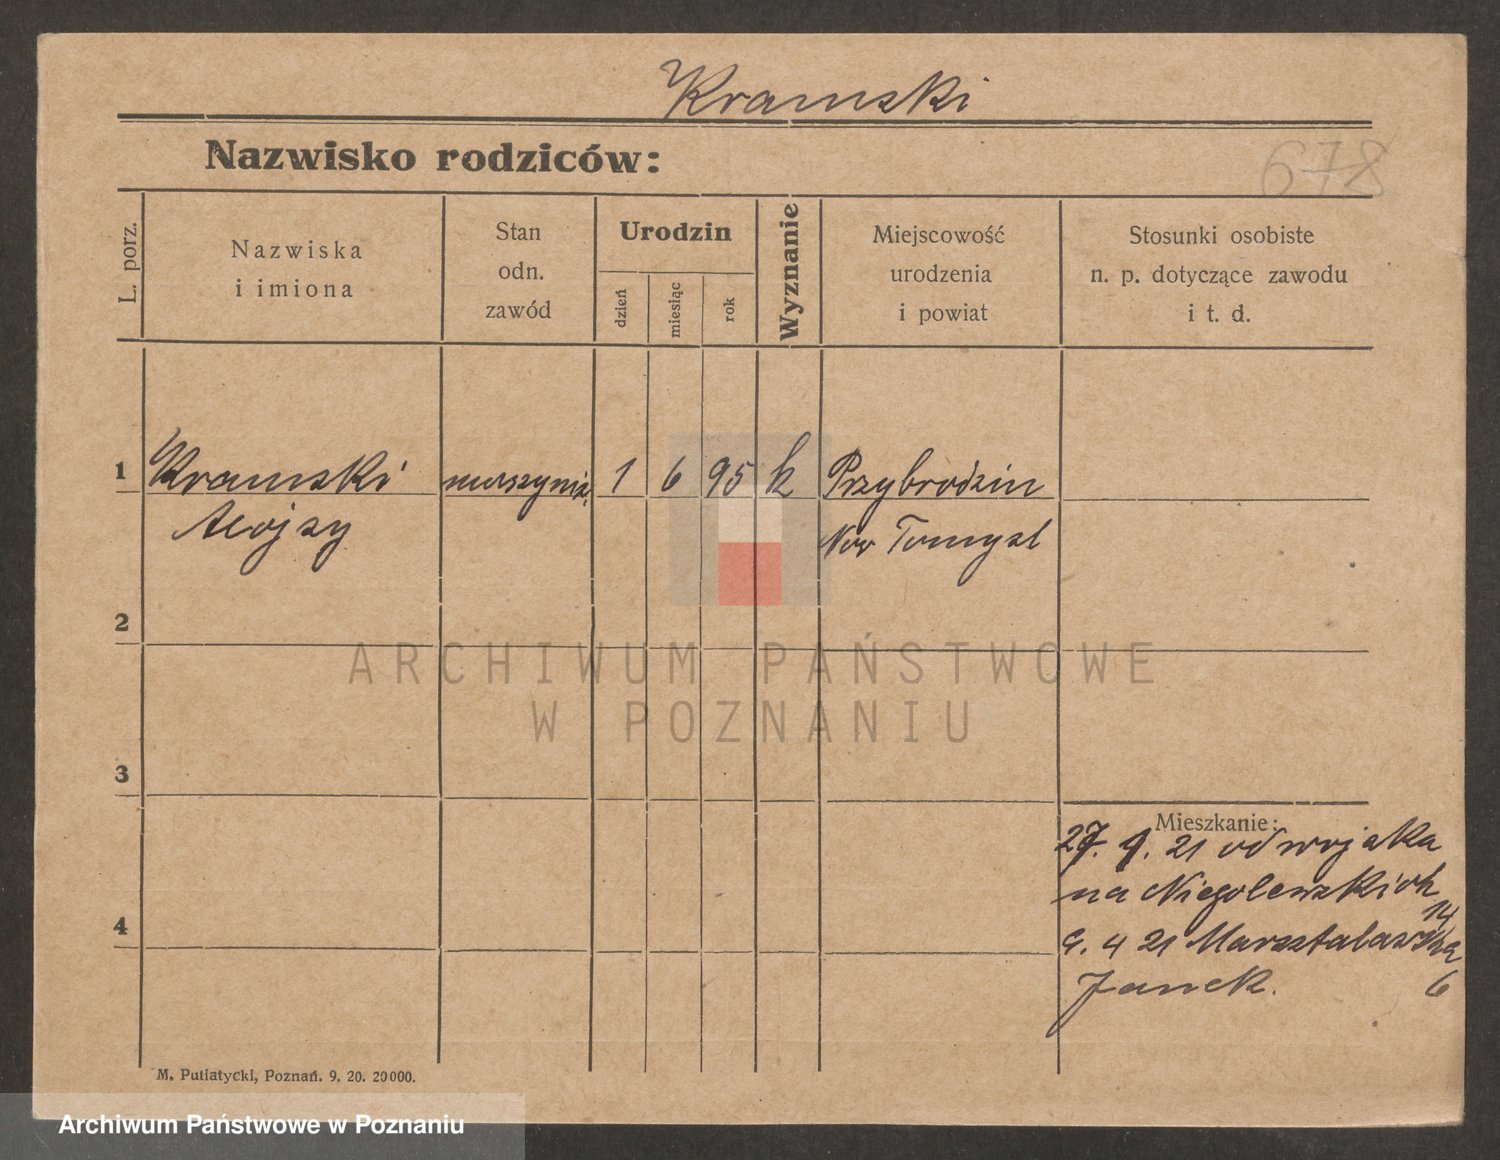 Kramski
Nazwisko rodziców:
678
L. porz.
Nazwiska
i imiona
Stan
odn.
zawód
Urodzin
dzień
miesiąc
rok
Wyznanie
Miejscowość
urodzenia
i powiat
Stosunki osobiste
n. p. dotyczące zawodu
i t. d.
1 Kramski maszynis. 1 6 95 k Przybrodzin
Alojzy Now Tomysl
2
3
4
Mieszkanie:
27. 1. 21 od wojska
na Niegolewskich
14
9. 4 21 Marsztalarska
Janek. 6
M. Putiatycki, Poznań. 9. 20. 20000.
ARCHIWUM PAŃSTWOWE
W POZNANIU
Archiwum Państwowe w Poznaniu